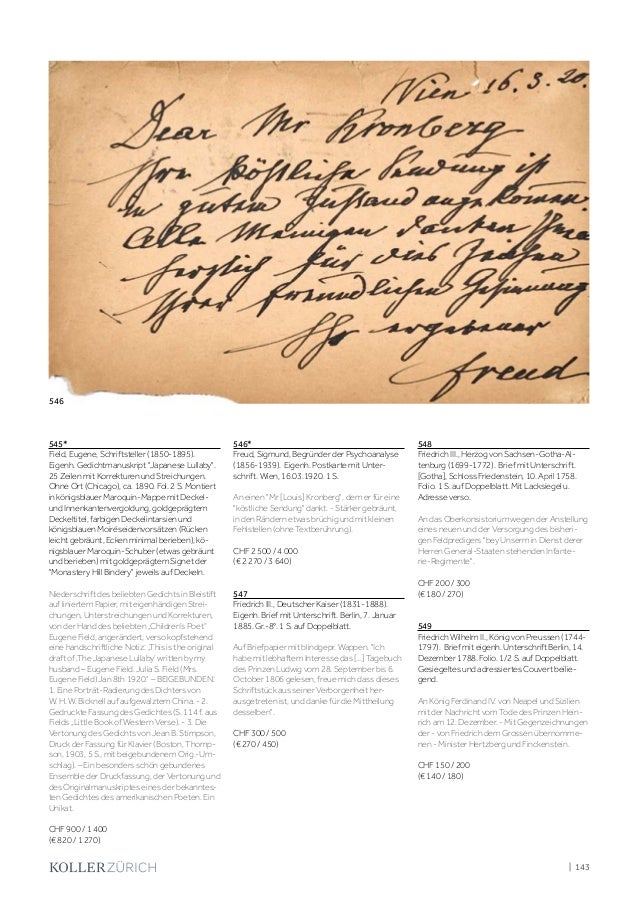 Wien 16.3.20.
Dear Mr Kronberg
Ihre köstliche Sendung ist
in gutem Zustand angekommen.
Alle Meinigen danken Ihnen
herzlich für dies Zeichen
Ihrer freundlichen Gesinnung
Ihr ergebener
Freud
546
545*
Field, Eugene, Schriftsteller (1850-1895).
Eigenh. Gedichtmanuskript "Japanese Lullaby".
25 Zeilen mit Korrekturen und Streichungen.
Ohne Ort (Chicago), ca. 1890. Fol. 2 S. Montiert
in königsblauer Maroquin-Mappe mit Deckel-
und Innenkantenvergoldung, goldgeprägtem
Deckeltitel, farbigen Deckelintarsien und
königsblauen Moiréseidenvorsätzen (Rücken
leicht gebräunt, Ecken minimal berieben), kö-
nigsblauer Maroquin-Schuber (etwas gebräunt
und berieben) mit goldgeprägtem Signet der
"Monastery Hill Bindery" jeweils auf Deckeln.
Niederschrift des beliebten Gedichts in Bleistift
auf liniertem Papier, mit eigenhändigen Strei-
chungen, Unterstreichungen und Korrekturen,
von der Hand des beliebten „Children's Poet"
Eugene Field, angerändert, verso kopfstehend
eine handschriftliche Notiz: „This is the original
draft of ‚The Japanese Lullaby' written by my
husband – Eugene Field. Julia S. Field (Mrs.
Eugene Field) Jan 8th 1920" – BEIGEBUNDEN:
1. Eine Porträt-Radierung des Dichters von
W. H. W. Bicknell auf aufgewalztem China. - 2.
Gedruckte Fassung des Gedichtes (S. 114 f. aus
Fields „Little Book of Western Verse). - 3. Die
Vertonung des Gedichts von Jean B. Stimpson,
Druck der Fassung für Klavier (Boston, Thomp-
son, 1903, 5 S., mit beigebundenem Orig.-Um-
schlag). – Ein besonders schön gebundenes
Ensemble der Druckfassung, der Vertonung und
des Originalmanuskriptes eines der bekanntes-
ten Gedichtes des amerikanischen Poeten. Ein
Unikat.
CHF 900 / 1 400
(€ 820 / 1 270)
546*
Freud, Sigmund, Begründer der Psychoanalyse
(1856-1939). Eigenh. Postkarte mit Unter-
schrift. Wien, 16.03.1920. 1 S.
An einen "Mr [Louis] Kronberg", dem er für eine
"köstliche Sendung" dankt. - Stärker gebräunt,
in den Rändern etwas brüchig und mit kleinen
Fehlstellen (ohne Textberührung).
CHF 2 500 / 4 000
(€ 2 270 / 3 640)
547
Friedrich III., Deutscher Kaiser (1831-1888).
Eigenh. Brief mit Unterschrift. Berlin, 7. Januar
1885. Gr.-8°. 1 S. auf Doppelblatt.
Auf Briefpapier mit blindgepr. Wappen. "Ich
habe mit lebhaftem Interesse das [...] Tagebuch
des Prinzen Ludwig vom 28. September bis 6.
October 1806 gelesen, freue mich dass dieses
Schriftstück aus seiner Verborgenheit her-
ausgetreten ist, und danke für die Mittheilung
desselben".
CHF 300 / 500
(€ 270 / 450)
548
Friedrich III., Herzog von Sachsen-Gotha-Al-
tenburg (1699-1772). Brief mit Unterschrift.
[Gotha], Schloss Friedenstein, 10. April 1758.
Folio. 1 S. auf Doppelblatt. Mit Lacksiegel u.
Adresse verso.
An das Oberkonsistorium wegen der Anstellung
eines neuen und der Versorgung des bisheri-
gen Feldpredigers "bey Unserm in Dienst derer
Herren General-Staaten stehenden Infante-
rie-Regimente".
CHF 200 / 300
(€ 180 / 270)
549
Friedrich Wilhelm II., König von Preussen (1744-
1797). Brief mit eigenh. Unterschrift Berlin, 14.
Dezember 1788. Folio. 1/2 S. auf Doppelblatt.
Gesiegeltes und adressiertes Couvert beilie-
gend.
An König Ferdinand IV. von Neapel und Sizilien
mit der Nachricht vom Tode des Prinzen Hein-
rich am 12. Dezember. - Mit Gegenzeichnungen
der - von Friedrich dem Grossen übernomme-
nen - Minister Hertzberg und Finckenstein.
CHF 150 / 200
(€ 140 / 180)
KOLLER ZÜRICH
| 143